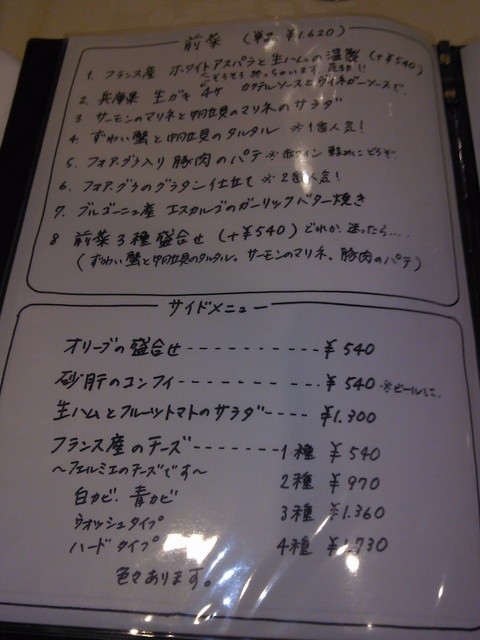 前菜 (単品 ¥1.620)
1. フランス産 ホワイトアスパラと生ハムの温製 (+¥540)
そろそろ終っちゃいます
2. 兵庫県 生ガキ 4ケ カクテルソースとヴィネガーソースで
3 サーモンのマリネと帆立貝のマリネのサラダ
4. ずわい蟹と帆立貝のタルタル ※1番人気!
5. フォアグラ入り 豚肉のパテ ※赤ワイン 軽めにどうぞ
6. フォアグラのグラタン仕立て ※2番人気!
7. ブルゴーニュ産 エスカルゴのガーリックバター焼き
8 前菜3種盛合せ (+¥540) どれか、迷ったら....
(ずわい蟹と帆立貝のタルタル、サーモンのマリネ、豚肉のパテ)
サイドメニュー
オリーブの盛合せ ---------- ¥540
砂肝のコンフィ ---------- ¥540 ※ビールに、
生ハムとフルーツトマトのサラダ---- ¥1.300
フランス産のチーズ-------1種 ¥540
〜フェルミエのチーズです〜 2種 ¥970
白カビ、青カビ 3種 ¥1.360
ウォッシュタイプ
ハードタイプ 4種 ¥1.730
色々あります。